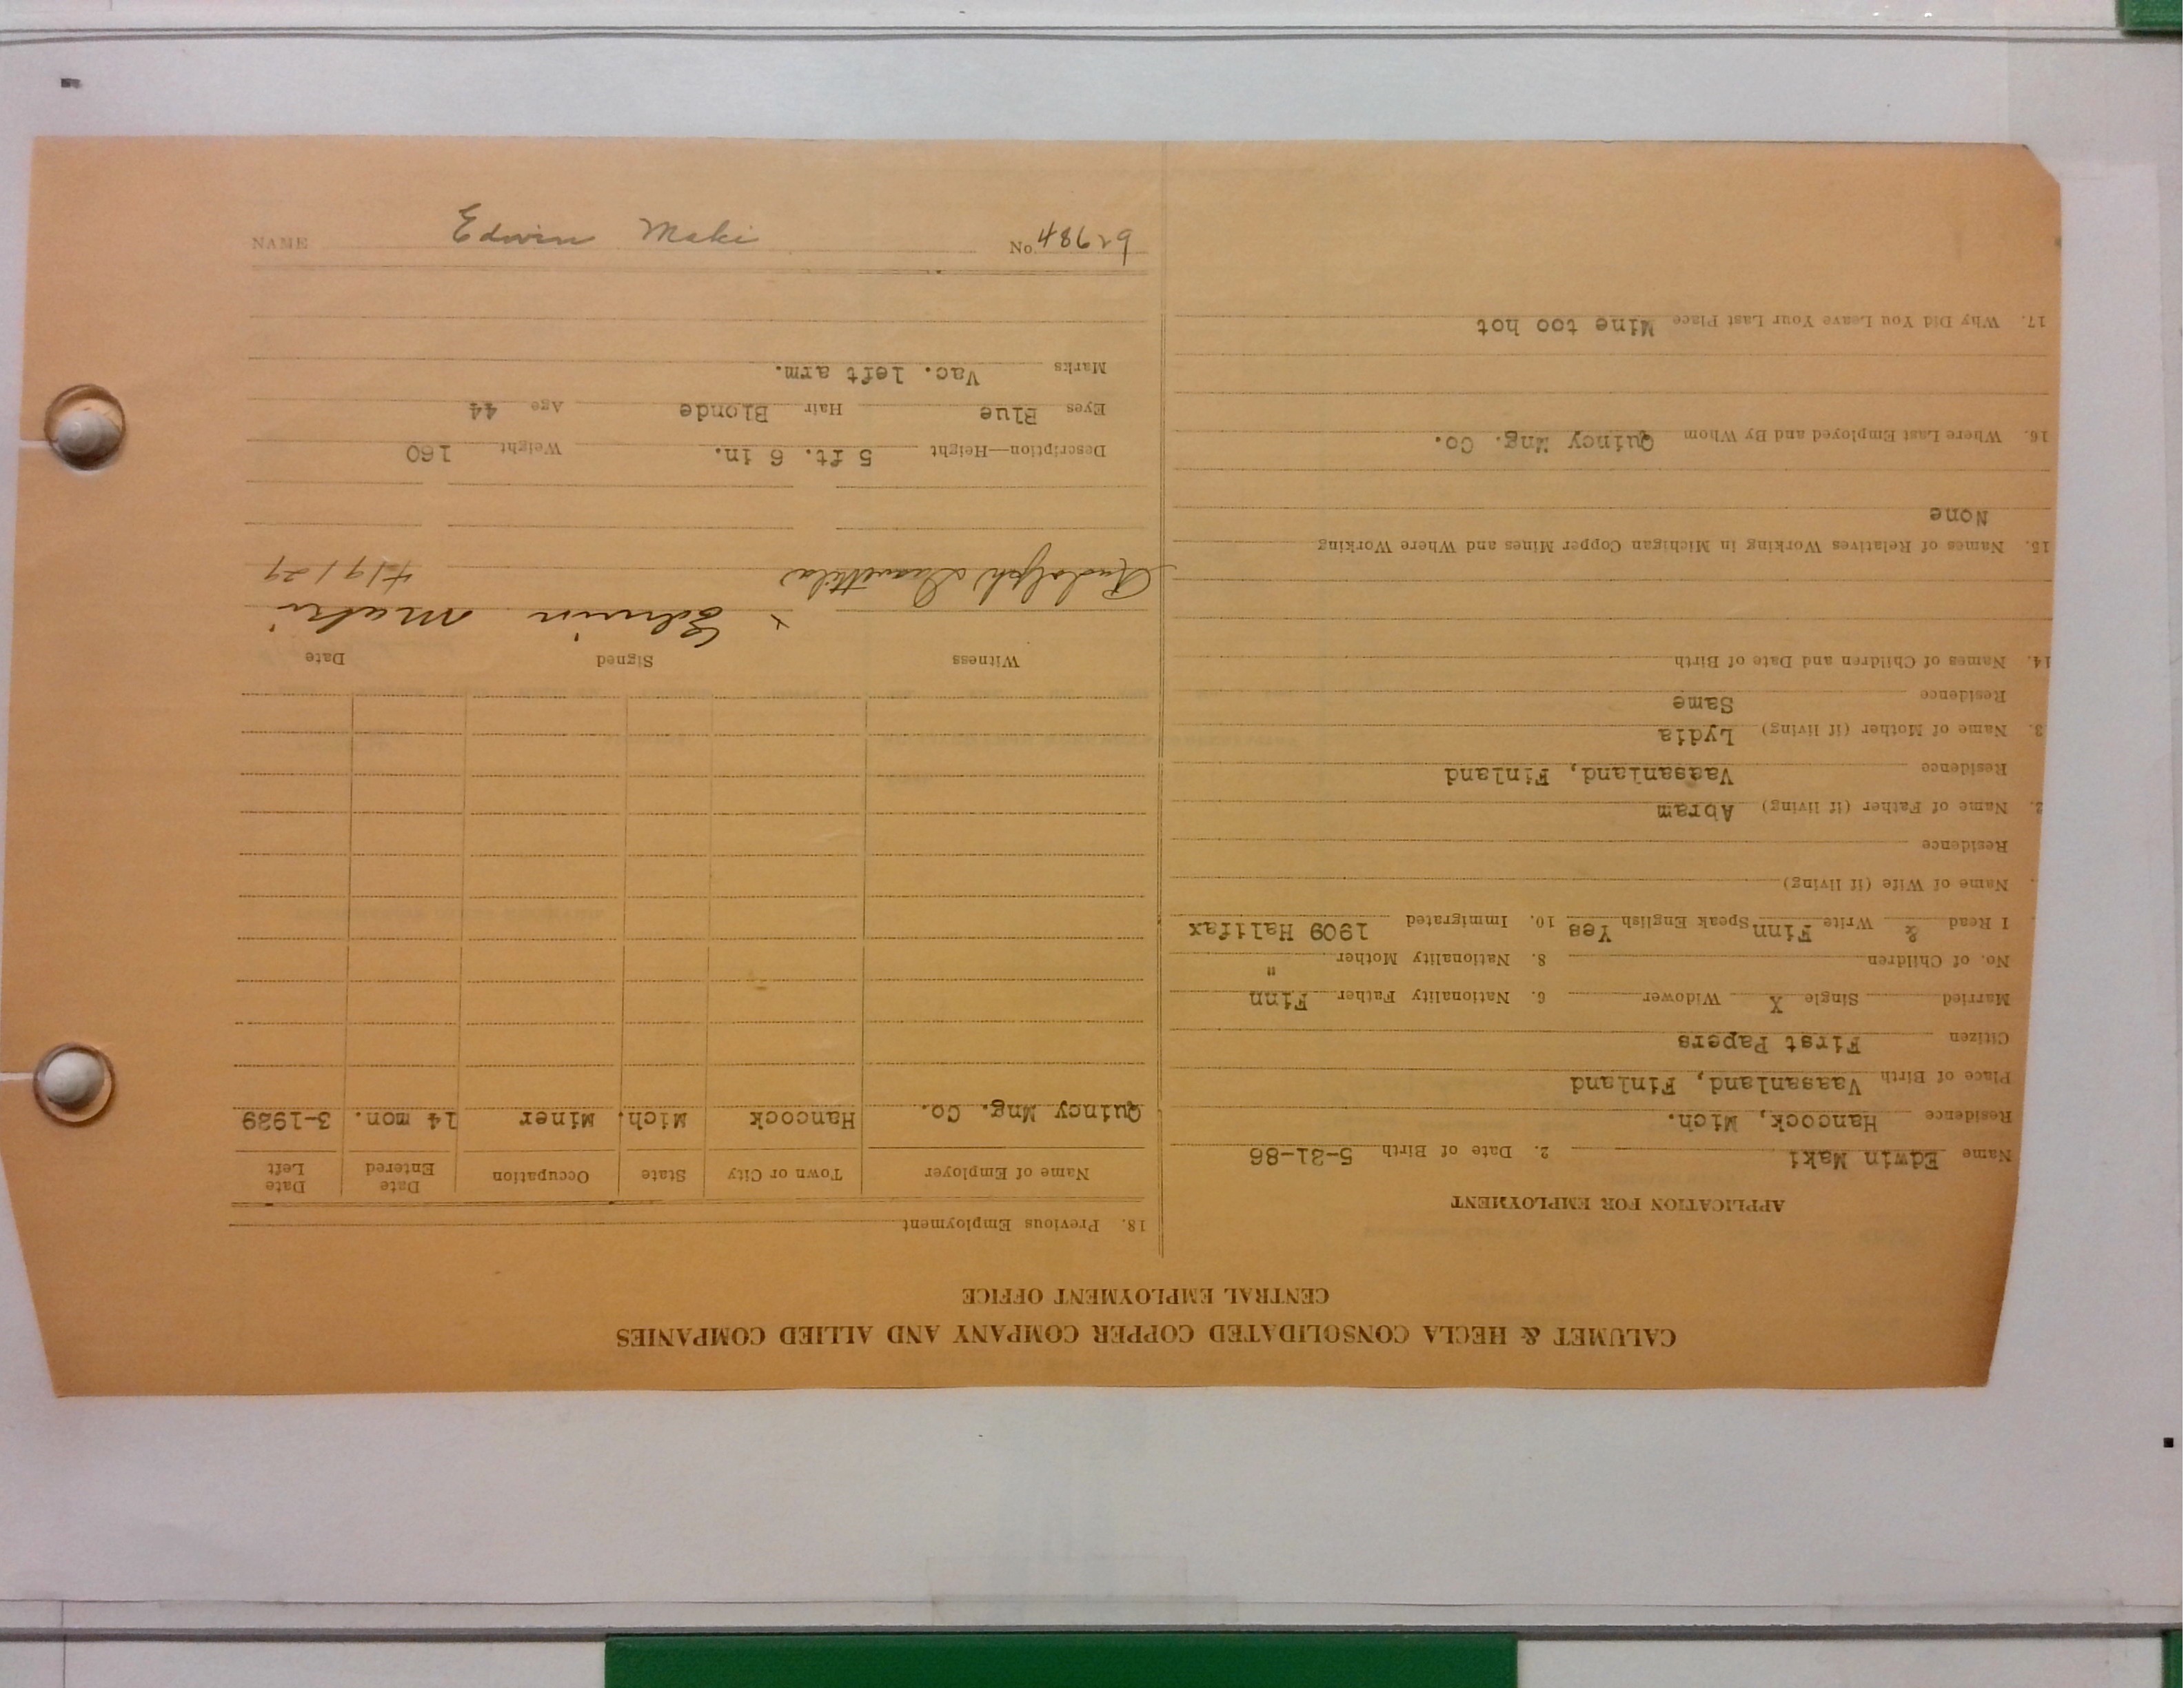 NAME Edwin Maki No. 48629
CALUMET & HECLA CONSOLIDATED COPPER COMPANY AND ALLIED COMPANIES
CENTRAL EMPLOYMENT OFFICE
APPLICATION FOR EMPLOYMENT
Name Edwin Maki 2. Date of Birth 5-21-86
Residence Hancock, Mich.
Place of Birth Vaasanland, Finland
Citizen First Papers
Married Single X Widower 6. Nationality Father Finn
No. of Children 8. Nationality Mother "
I Read & Write Finn Speak English Yes 10. Immigrated 1909 Halifax
Name of Wife (if living)
Residence
2. Name of Father (if living) Abram
Residence Vaasanland, Finland
3. Name of Mother (if living) Lydia
Residence Same
14. Names of Children and Date of Birth
15. Names of Relatives Working in Michigan Copper Mines and Where Working
None
16. Where Last Employed and By Whom Quincy Mng. Co.
17. Why Did You Leave Your Last Place Mine too hot
18. Previous Employment
Name of Employer Town or City State Occupation Date Entered Date Left
Quincy Mng. Co. Hancock Mich. Miner 14 mon. 3-1929
Witness Signed Date
Rudolph x Edwin Maki 4/9/29
Description—Height 5 ft. 6 in. Weight 160
Eyes Blue Hair Blonde Age 44
Marks Vac. left arm.